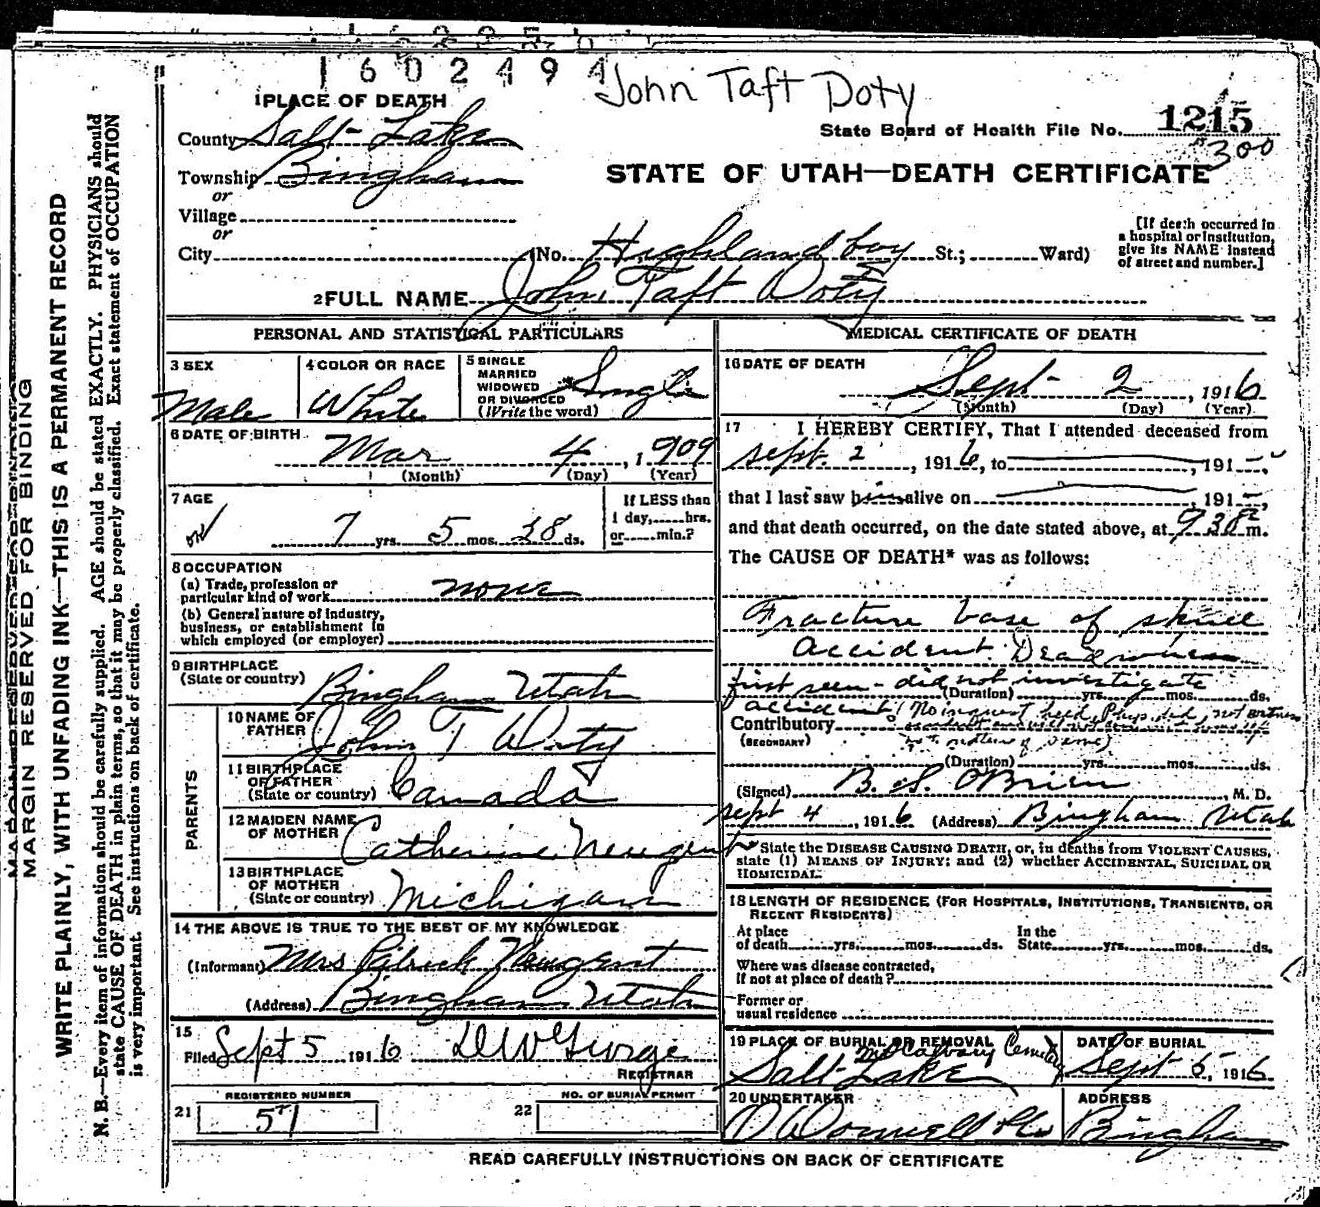 1602494
John Taft Doty
1 PLACE OF DEATH
County Salt Lake
State Board of Health File No. 1215
300
Township Bingham
or
Village
or
City
STATE OF UTAH—DEATH CERTIFICATE
(No. Highland boy St.; Ward)
[If death occurred in a hospital or institution, give its NAME instead of street and number.]
2 FULL NAME John Taft Doty
PERSONAL AND STATISTICAL PARTICULARS
3 SEX
Male
4 COLOR OR RACE
White
5 SINGLE MARRIED WIDOWED OR DIVORCED (Write the word)
Single
6 DATE OF BIRTH
Mar 4, 1909
(Month) (Day) (Year)
7 AGE
7 yrs. 5 mos. 28 ds.
If LESS than 1 day, hrs. or min.?
8 OCCUPATION
(a) Trade, profession or particular kind of work none
(b) General nature of industry, business, or establishment in which employed (or employer)
9 BIRTHPLACE
(State or country) Bingham Utah
PARENTS
10 NAME OF FATHER John T Doty
11 BIRTHPLACE OF FATHER (State or country) Canada
12 MAIDEN NAME OF MOTHER Catherine Neugent
13 BIRTHPLACE OF MOTHER (State or country) Michigan
14 THE ABOVE IS TRUE TO THE BEST OF MY KNOWLEDGE
(Informant) Mrs Patrick Neugent
(Address) Bingham Utah
15
Filed Sept 5 1916 D W George
REGISTRAR
21 REGISTERED NUMBER 57
22 NO. OF BURIAL PERMIT
MEDICAL CERTIFICATE OF DEATH
16 DATE OF DEATH
Sept 2, 1916
(Month) (Day) (Year)
17 I HEREBY CERTIFY, That I attended deceased from
Sept. 2, 1916, to , 191
that I last saw him alive on , 191
and that death occurred, on the date stated above, at 9 30 P m.
The CAUSE OF DEATH* was as follows:
Fracture base of skull
Accident. Dead when
first seen - did not investigate
(Duration) yrs. mos. ds.
accident (No inquest held, Phys. did not witness
Contributory
(SECONDARY)
(Duration) yrs. mos. ds.
(Signed) B. S. O'Brien, M. D.
Sept 4, 1916 (Address) Bingham Utah
* State the DISEASE CAUSING DEATH, or, in deaths from VIOLENT CAUSES, state (1) MEANS OF INJURY; and (2) whether ACCIDENTAL, SUICIDAL OR HOMICIDAL.
18 LENGTH OF RESIDENCE (FOR HOSPITALS, INSTITUTIONS, TRANSIENTS, OR RECENT RESIDENTS)
At place of death yrs. mos. ds. In the State yrs. mos. ds.
Where was disease contracted, if not at place of death?
Former or usual residence
19 PLACE OF BURIAL OR REMOVAL
Mt Calvary Cemetery
Salt Lake
DATE OF BURIAL
Sept 5, 1916
20 UNDERTAKER
O'Donnell & Co
ADDRESS
Bingham
READ CAREFULLY INSTRUCTIONS ON BACK OF CERTIFICATE
MARGIN RESERVED FOR BINDING
WRITE PLAINLY, WITH UNFADING INK—THIS IS A PERMANENT RECORD
N. B.—Every item of information should be carefully supplied. AGE should be stated EXACTLY. PHYSICIANS should
state CAUSE OF DEATH in plain terms, so that it may be properly classified. Exact statement of OCCUPATION
is very important. See instructions on back of certificate.